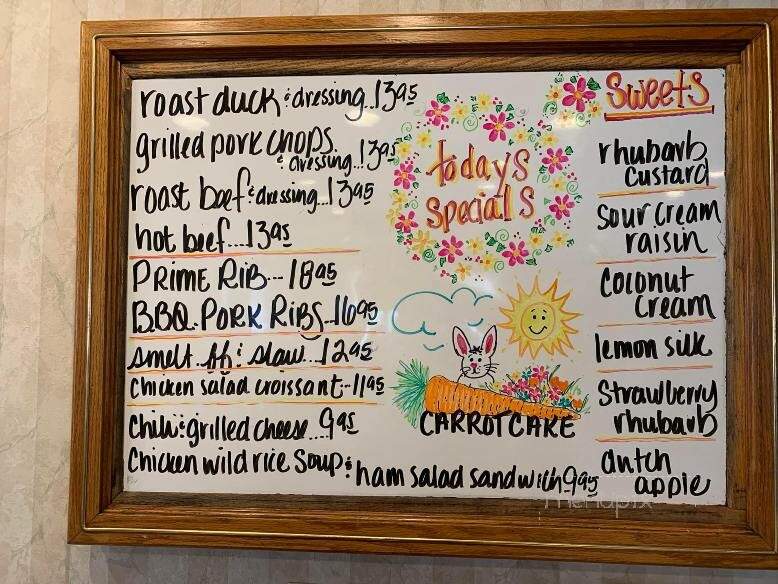 roast duck & dressing...13.95
grilled pork chops
& dressing...13.95
roast beef & dressing...13.95
hot beef...13.95
PRIME RIB...18.95
B.B.Q. PORK RIBS..16.95
smelt. ff & slaw...12.95
chicken salad croissant--11.95
chili & grilled cheese...9.95
chicken wild rice soup &
ham salad sandwich 9.95
todays
specials
CARROT CAKE
Sweets
rhubarb
custard
sour cream
raisin
coconut
cream
lemon silk
strawberry
rhubarb
dutch
apple
menupix